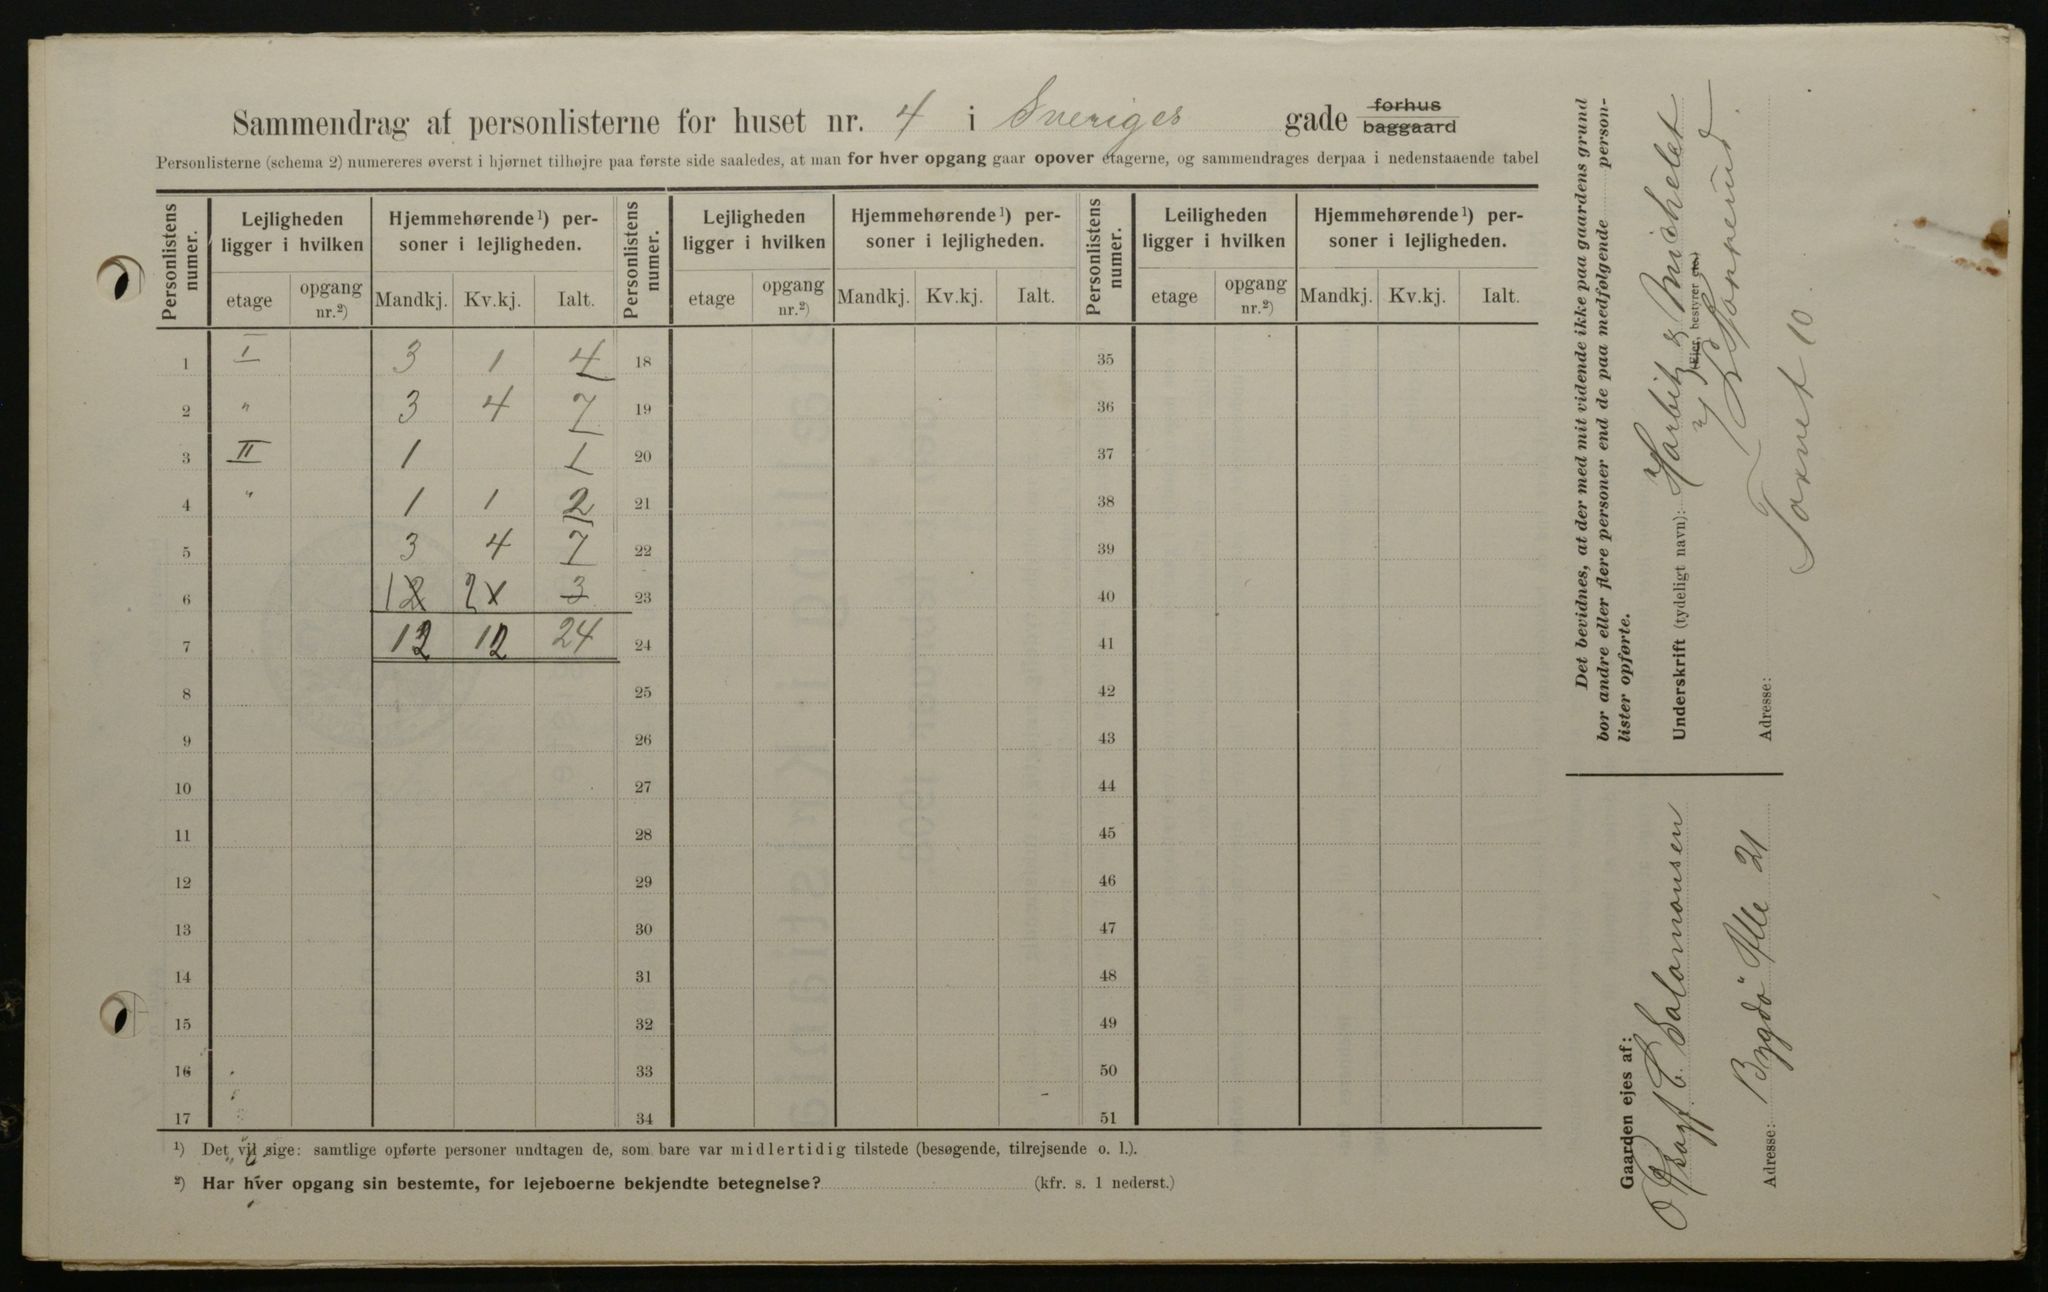 Sammendrag af personlisterne for huset nr. 4 i Sveriges gade forhus baggaard
Personlisterne (schema 2) numereres øverst i hjørnet tilhøjre paa første side saaledes, at man for hver opgang gaar opover etagerne, og sammendrages derpaa i nedenstaaende tabel
Personlistens numer. Lejligheden ligger i hvilken Hjemmehørende¹) personer i lejligheden. Personlistens numer. Lejligheden ligger i hvilken Hjemmehørende¹) personer i lejligheden. Personlistens numer. Leiligheden ligger i hvilken Hjemmehørende¹) personer i lejligheden.
etage opgang nr.²) Mandkj. Kv.kj. Ialt. etage opgang nr.²) Mandkj. Kv.kj. Ialt. etage opgang nr.²) Mandkj. Kv.kj. Ialt.
1 I 3 1 4 18 35
2 " 3 4 7 19 36
3 II 1 1 20 37
4 " 1 1 2 21 38
5 3 4 7 22 39
6 1 2 2 1 3 23 40
7 12 12 24 24 41
8 25 42
9 26 43
10 27 44
11 28 45
12 29 46
13 30 47
14 31 48
15 32 49
16 33 50
17 34 51
¹) Det vil sige: samtlige opførte personer undtagen de, som bare var midlertidig tilstede (besøgende, tilrejsende o. l.).
²) Har hver opgang sin bestemte, for lejeboerne bekjendte betegnelse? (kfr. s. 1 nederst.)
Det bevidnes, at der med mit vidende ikke paa gaardens grund
bor andre eller flere personer end de paa medfølgende personlister opførte.
Underskrift (tydeligt navn): Harbitz & Michelet
(Ejer, bestyrer etc.)
Adresse: Torvet 10
Gaarden ejes af:
C. Salomonsen
Adresse: Bygdö Alle 21